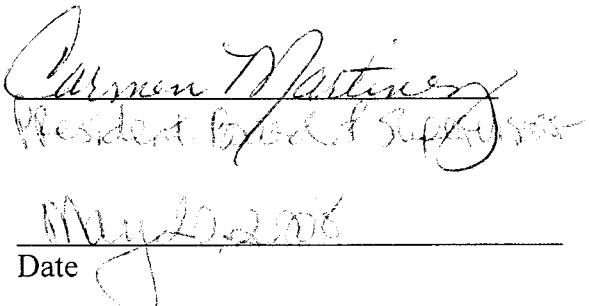 Carmen Martinez
President Board of Supervisors
May 20, 2008
Date